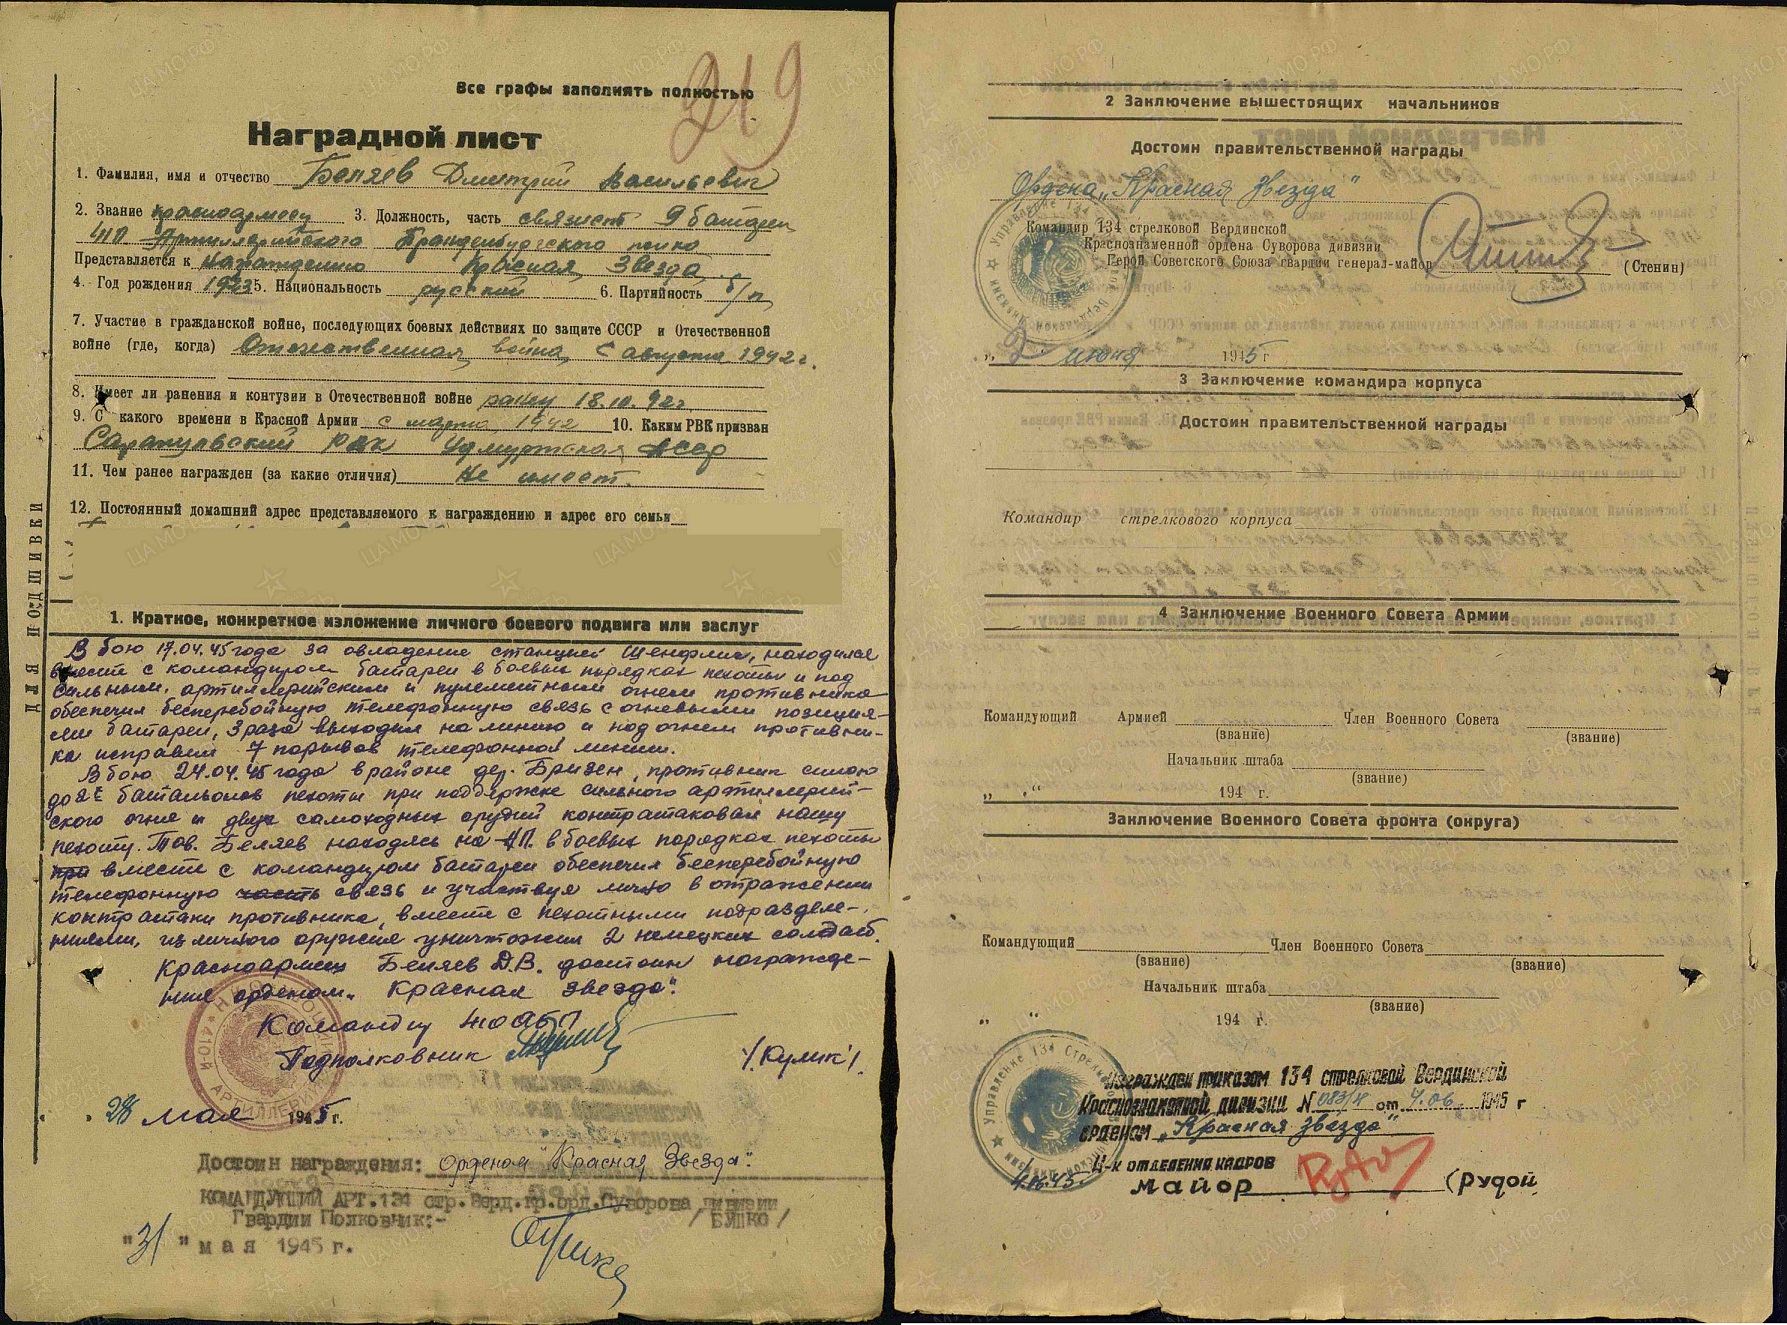 219
Все графы заполнять полностью
Наградной лист
1. Фамилия, имя и отчество Беляев Дмитрий Васильевич
2. Звание красноармеец 3. Должность, часть связист 9 батареи
Артиллерийского Бранденбургского полка
Представляется к награждению Красная Звезда
4. Год рождения 1923 5. Национальность русский 6. Партийность б/п
7. Участие в гражданской войне, последующих боевых действиях по защите СССР и Отечественной
войне (где, когда) Отечественная война с августа 1942 г.
8. Имеет ли ранения и контузии в Отечественной войне ранен 18.10.42г.
9. С какого времени в Красной Армии с марта 1942 10. Каким РВК призван
Сарапульский РВК Удмуртская АССР
11. Чем ранее награжден (за какие отличия) Не имеет.
12. Постоянный домашний адрес представляемого к награждению и адрес его семьи
ДЛЯ ПОДШИВКИ
1. Краткое, конкретное изложение личного боевого подвига или заслуг
В бою 17.04.45 года за овладение станцией Шенфлис, находился
вместе с командиром батареи в боевых порядках пехоты и под
сильным, артиллерийским и пулеметным огнем противника
обеспечил бесперебойную телефонную связь с огневыми позиция-
ми батареи, 3 раза выходил на линию и под огнем противни-
ка исправил 7 порывов телефонной линии.
В бою 24.04.45 года в районе дер. Бризен, противник силою
до 2х батальонов пехоты при поддержке сильного артиллерий-
ского огня и двух самоходных орудий контратаковал нашу
пехоту. Тов. Беляев находясь на НП. в боевых порядках пехоты
при вместе с командиром батареи обеспечил бесперебойную
телефонную часть связь и участвуя лично в отражении
контратаки противника, вместе с пехотными подразделе-
ниями, из личного оружия уничтожил 2 немецких солдат.
Красноармеец Беляев Д.В. достоин награжде-
ния орденом "Красная звезда".
Командир
Подполковник /Кулик/.
28 мая 1945 г.
Достоин награждения: Орденом "Красная Звезда".
КОМАНДУЮЩИЙ АРТ.134 стр.Верд.кр.орд.Суворова дивизии
Гвардии Полковник:- /БУШКО/
"31" мая 1945 г.
2 Заключение вышестоящих начальников
Достоин правительственной награды
Ордена "Красная Звезда"
Командир 134 стрелковой Вердинской
Краснознаменной ордена Суворова дивизии
Герой Советского Союза гвардии генерал-майор (Стенин)
"2" июня 1945 г
3 Заключение командира корпуса
Достоин правительственной награды
Командир стрелкового корпуса
4 Заключение Военного Совета Армии
Командующий Армией Член Военного Совета
(звание) (звание)
Начальник штаба
(звание)
" " 194 г.
Заключение Военного Совета фронта (округа)
Командующий Член Военного Совета
(звание) (звание)
Начальник штаба
(звание)
" " 194 г.
Управление 134 Стрелковой
Награжден приказом 134 стрелковой Вердинской
Краснознаменной дивизии N 083/н от 4.06. 1945 г
орденом "Красная звезда"
Н-к ОТДЕЛЕНИЯ КАДРОВ
майор (Рудой